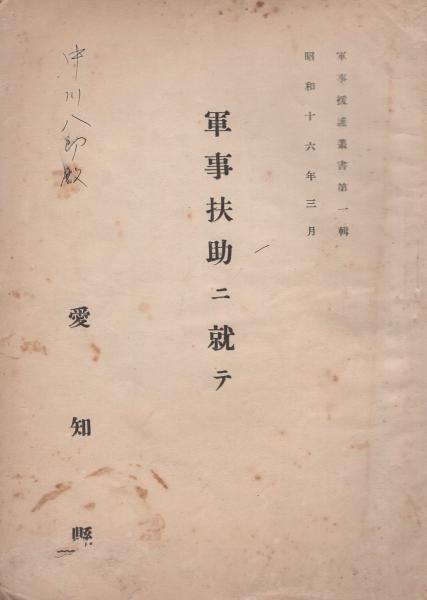 軍事援護叢書第一輯
昭和十六年三月
軍事扶助ニ就テ
愛知縣
中川八郎殿